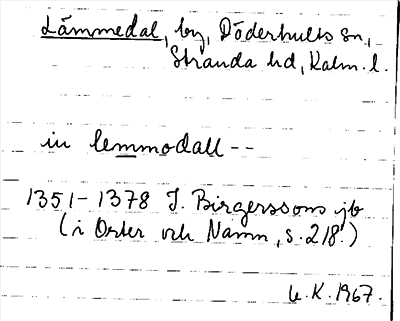 Lämmedal, by, Döderhults sn,
Stranda hd, Kalm. l.
in lemmodall --
1351-1378 J. Birgerssons jb
(i Orter och Namn, s. 218.)
K. 1967.